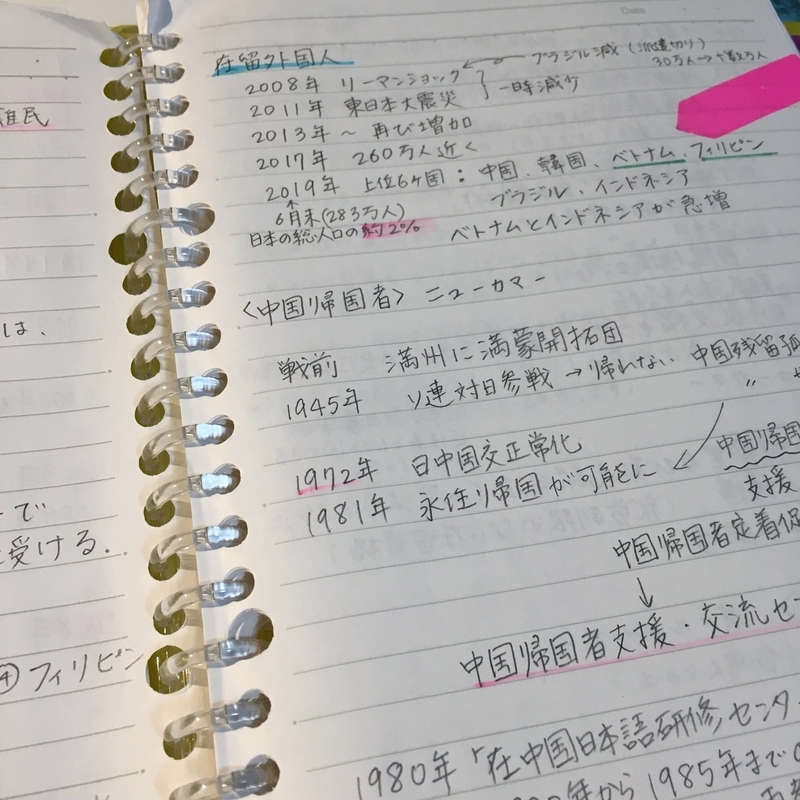 難民
は、
で
受ける.
④フィリピン
Date
在留外国人
ブラジル減（派遣切り）
30万人→十数万人
2008年 リーマンショック
2011年 東日本大震災
一時減少
2013年～ 再び増加
2017年 260万人近く
2019年 上位6ヶ国：中国、韓国、ベトナム、フィリピン
ブラジル、インドネシア
6月末(283万人)
日本の総人口の約2%
ベトナムとインドネシアが急増
〈中国帰国者〉 ニューカマー
戦前 満州に満蒙開拓団
1945年 ソ連対日参戦→帰れない 中国残留孤
〃
1972年 日中国交正常化
1981年 永住帰国が可能に
中国帰国
支援
中国帰国者定着促
↓
中国帰国者支援・交流セン
1980年「在中国日本語研修センタ
年から1985年までの